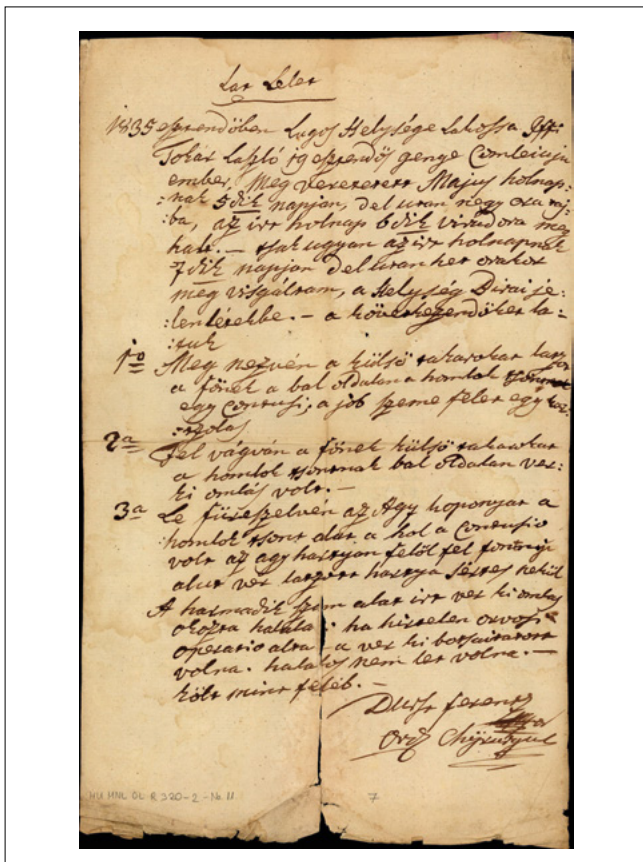 Lat Lelet
1835 esztendőben Lugos Helysége Lakossa Iffi
Tokár László 19 esztendős genge
ember, Meg veretetett Május holnap:
:nak 5dik napján, del utan negy ora taj
ba, az irt holnap 6dik virradora meg
halt. — tsak ugyan az irt holnapnak
7dik napján del utan het orakor
meg visgáltam, a Helység Birai je:
:lenlétekbe. — a következendőket ta:
:tuk
1o Meg nezvén a külső takarokat
a főnek a bal oldalan a homlok
egy Contusi; a job szeme felet egy kar
:tzolas
2a Fel vágván a főnek külső takarokat
a homlok tsontnak bal oldalan ver
ki omlás volt. —
3a Le fürészelvén az Agy koponyat a
homlok tsont alat a hol a Contusio
volt az agy hartyan felől fel fontnyi
alut ver latzott hartya sértes nekül
A harmadik szam alat irt ver ki omlas
okozta halala. ha hirtelen orvosi
operatio alta a ver ki botsaitatott
volna. halalos nem let volna. —
költ mint feleb. —
Ferentz
HU MNL OL R 320-2-No. 11
7